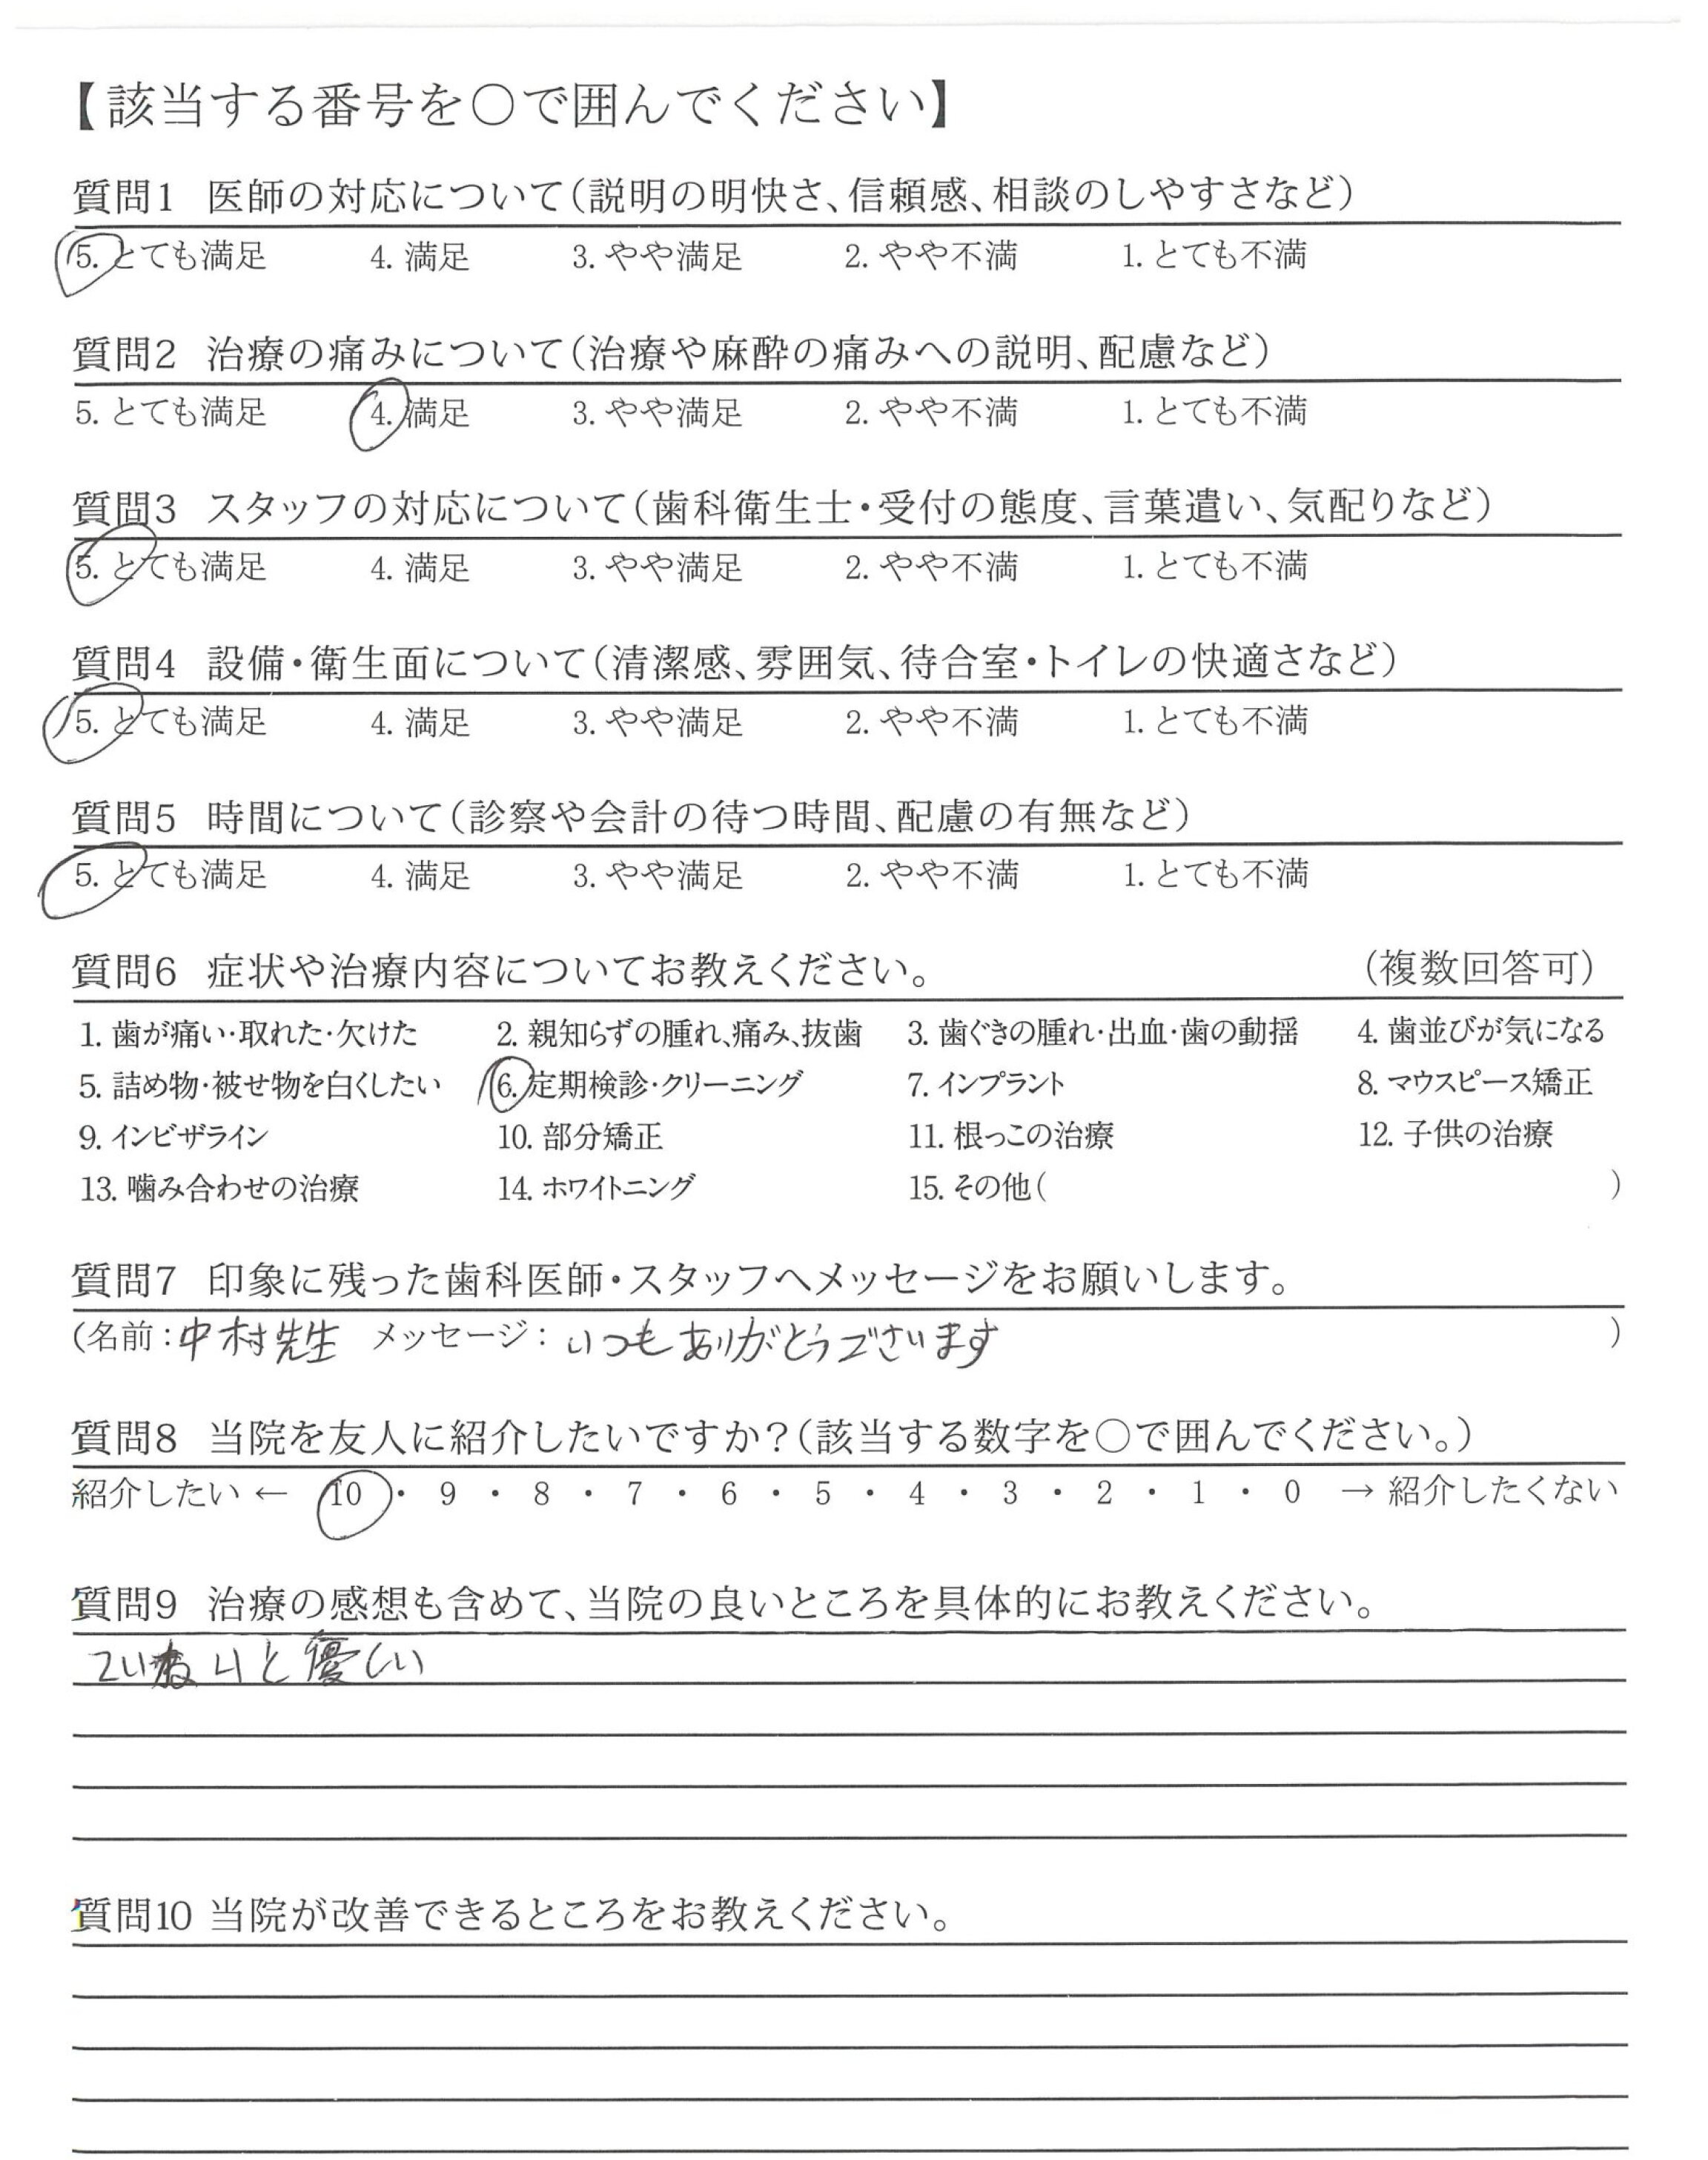 【該当する番号を〇で囲んでください】
質問1 医師の対応について(説明の明快さ、信頼感、相談のしやすさなど)
5. とても満足 4. 満足 3. やや満足 2. やや不満 1. とても不満
質問2 治療の痛みについて(治療や麻酔の痛みへの説明、配慮など)
5. とても満足 4. 満足 3. やや満足 2. やや不満 1. とても不満
質問3 スタッフの対応について(歯科衛生士・受付の態度、言葉遣い、気配りなど)
5. とても満足 4. 満足 3. やや満足 2. やや不満 1. とても不満
質問4 設備・衛生面について(清潔感、雰囲気、待合室・トイレの快適さなど)
5. とても満足 4. 満足 3. やや満足 2. やや不満 1. とても不満
質問5 時間について(診察や会計の待つ時間、配慮の有無など)
5. とても満足 4. 満足 3. やや満足 2. やや不満 1. とても不満
質問6 症状や治療内容についてお教えください。 (複数回答可)
1. 歯が痛い・取れた・欠けた 2. 親知らずの腫れ、痛み、抜歯 3. 歯ぐきの腫れ・出血・歯の動揺 4. 歯並びが気になる
5. 詰め物・被せ物を白くしたい 6. 定期検診・クリーニング 7. インプラント 8. マウスピース矯正
9. インビザライン 10. 部分矯正 11. 根っこの治療 12. 子供の治療
13. 噛み合わせの治療 14. ホワイトニング 15. その他( )
質問7 印象に残った歯科医師・スタッフへメッセージをお願いします。
(名前:中村先生 メッセージ:いつもありがとうございます )
質問8 当院を友人に紹介したいですか?(該当する数字を〇で囲んでください。)
紹介したい ← 10 ・ 9 ・ 8 ・ 7 ・ 6 ・ 5 ・ 4 ・ 3 ・ 2 ・ 1 ・ 0 → 紹介したくない
質問9 治療の感想も含めて、当院の良いところを具体的にお教えください。
ていねいと優しい
質問10 当院が改善できるところをお教えください。